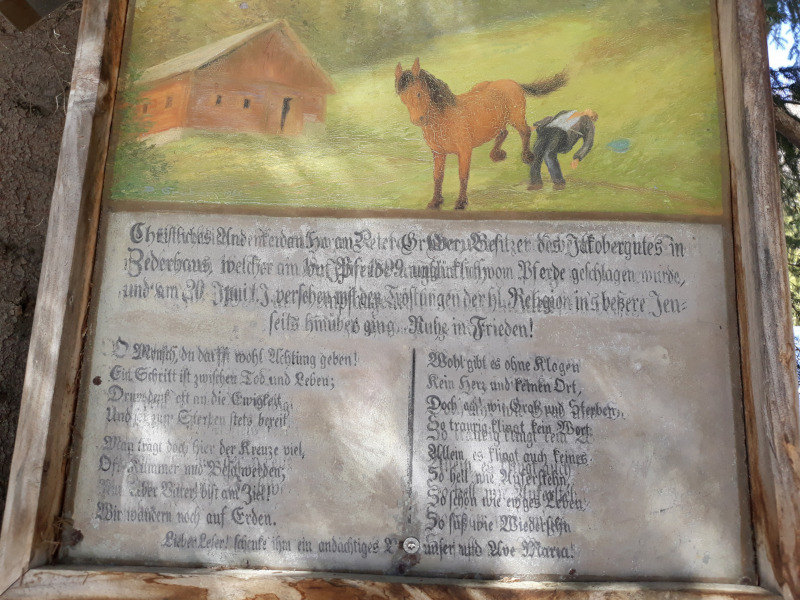 Christliches Andenken an Herrn Peter Gruber, Besitzer des Jakobergutes in
Zederhaus, welcher am unglücklich vom Pferde geschlagen wurde,
und am 20 Juni l. J. versehen mit den Tröstungen der hl. Religion in's beßere Jen-
seits hinüber ging. Ruhe in Frieden!
O Mensch, du darfst wohl Achtung geben!
Ein Schritt ist zwischen Tod und Leben;
Drum denk' oft an die Ewigkeit,
Und sei zum Sterben stets bereit
Man tragt doch hier der Kreuze viel,
Oft Kummer und Beschwerden;
Lieber Vater! bist am Ziel
Wir wandern noch auf Erden.
Wohl gibt es ohne Klagen
Kein Herz und keinen Ort,
Doch ach! wie Grab und Sterben,
So traurig klingt kein Wort.
Allein, es klingt auch keines
So hell wie Aufersteh'n,
So schön wie ew'ges Leben
So süß wie Wiederseh'n
Lieber Leser! schenke ihm ein andachtiges unser und Ave Maria!